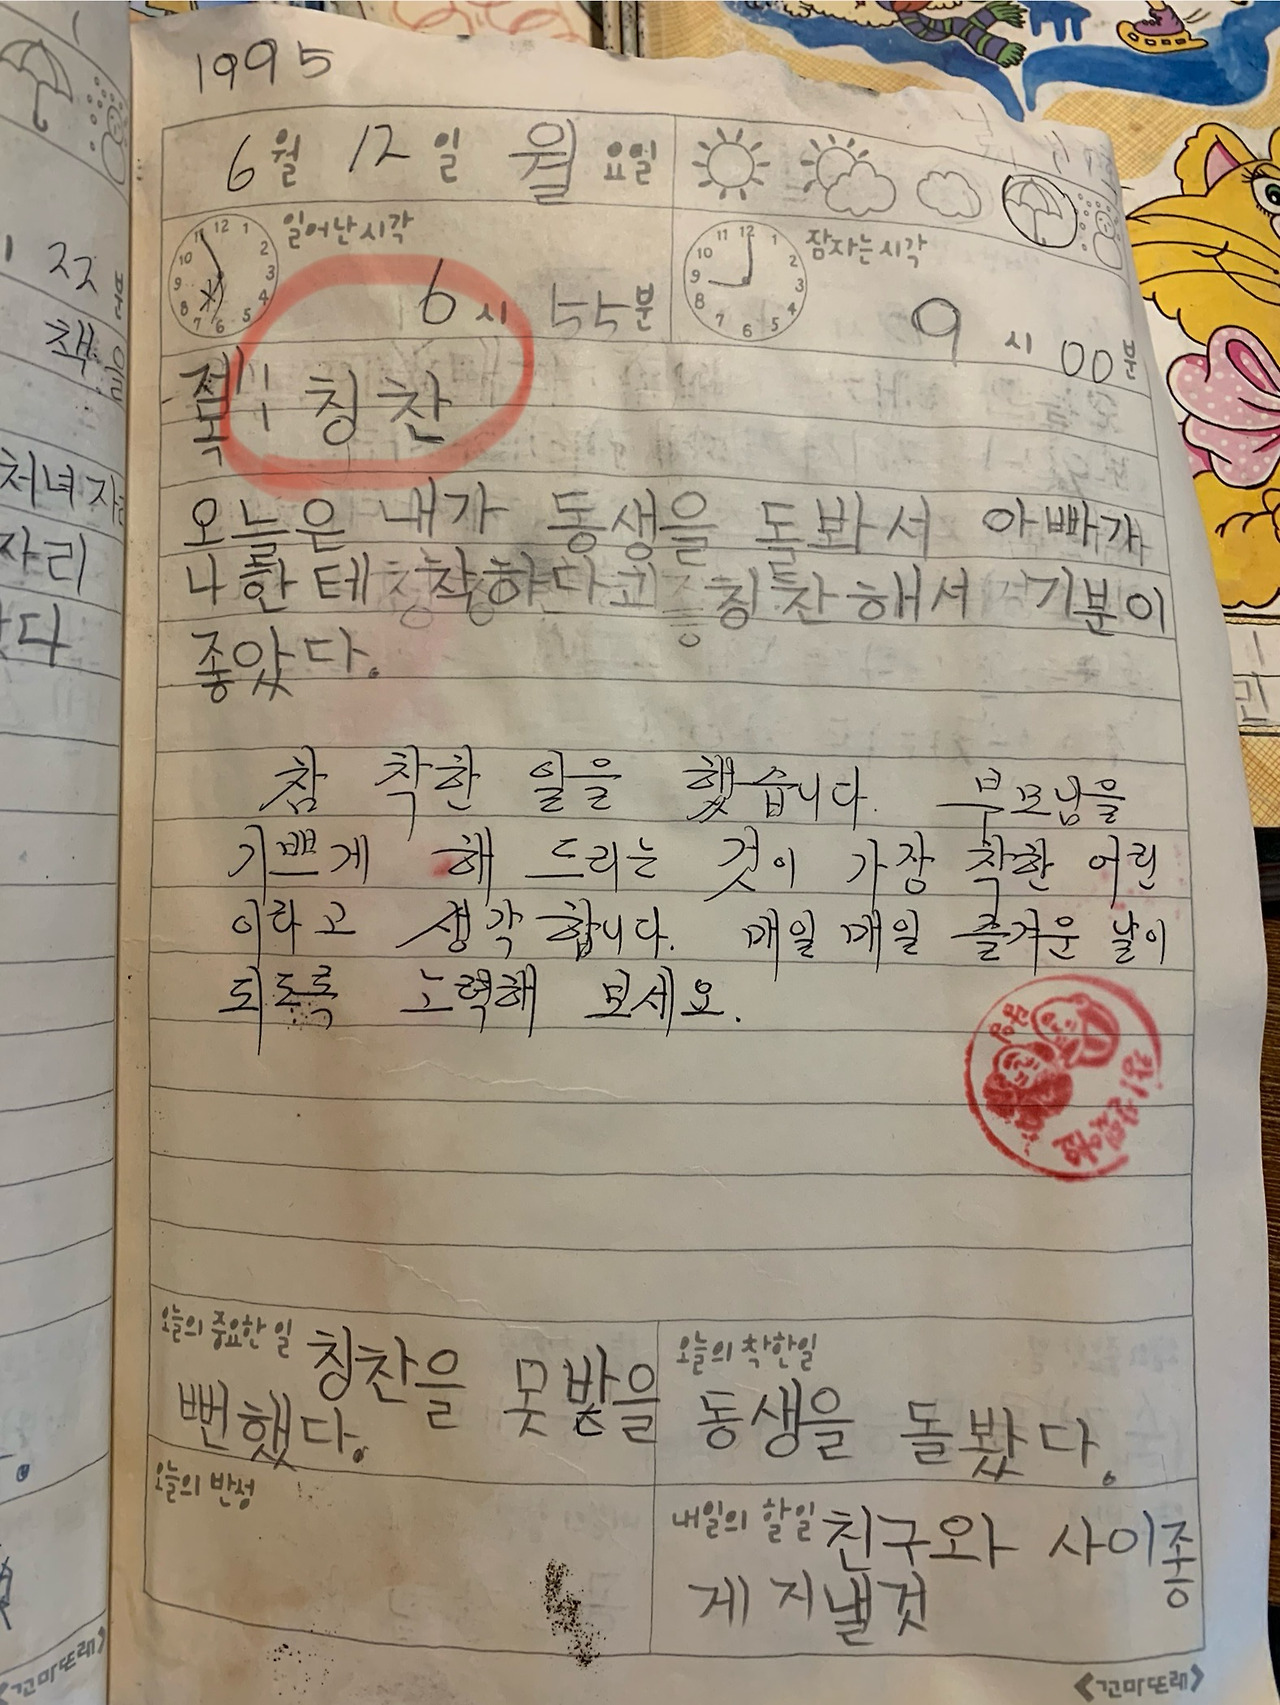 1995
6월 12일 월요일
일어난시각
6시 55분
잠자는시각
9시 00분
제목 : 칭찬
오늘은 내가 동생을 돌봐서 아빠가
나한테 착하다고 칭찬해서 기분이
좋았다.
참 착한 일을 했습니다. 부모님을
기쁘게 해 드리는 것이 가장 착한 어린
이라고 생각합니다. 매일매일 즐거운 날이
되도록 노력해 보세요.
오늘의 중요한 일
칭찬을 못받을
뻔했다.
오늘의 착한일
동생을 돌봤다.
오늘의 반성
내일의 할일
친구와 사이좋
게 지낼것
<꼬마또래>
22
책
처녀자
자리
다
<꼬마또래>